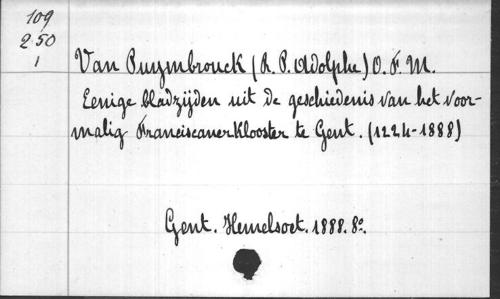 109
250
1
Van Puymbrouck (R. P. Adolphe) O. F. M.
Eenige bladzijden uit de geschiedenis van het voor-
malig Franciscanerklooster te Gent. (1224-1888)
Gent. Hemelsoet. 1888. 8o.